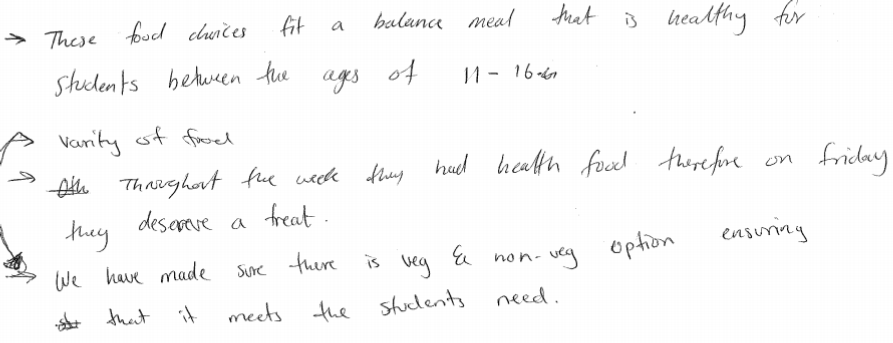 → These food choices fit a balance meal that is healthy for
students between the ages of 11 - 16
→ varity of food
→ Throughout the week they had health food therefore on friday
they deserve a treat.
→ We have made sure there is veg & non-veg option ensuring
that it meets the students need.